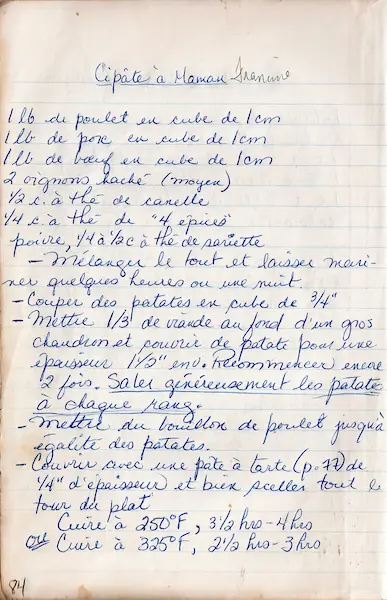 Cipâte à Maman Francine
1 lb de poulet en cube de 1cm
1 lb de porc en cube de 1cm
1 lb de bœuf en cube de 1cm
2 oignons haché (moyen)
1/2 c. à thé de canelle
1/4 c. à thé de "4 épices"
poivre, 1/4 à 1/2 c à thé de sariette
- Mélanger le tout et laisser mari-
ner quelques heures ou une nuit.
- Couper des patates en cube de 3/4"
- Mettre 1/3 de viande au fond d'un gros
chaudron et couvrir de patate pour une
épaisseur 1 1/2" env. Recommencer encore
2 fois. Saler généreusement les patates
à chaque rang.
- Mettre du bouillon de poulet jusqu'à
égalité des patates.
- Couvrir avec une pâte à tarte (p. 77) de
1/4" d'épaisseur et bien sceller tout le
tour du plat
Cuire à 250°F, 3 1/2 hrs - 4 hrs
ou Cuire à 325°F, 2 1/2 hrs - 3 hrs
84